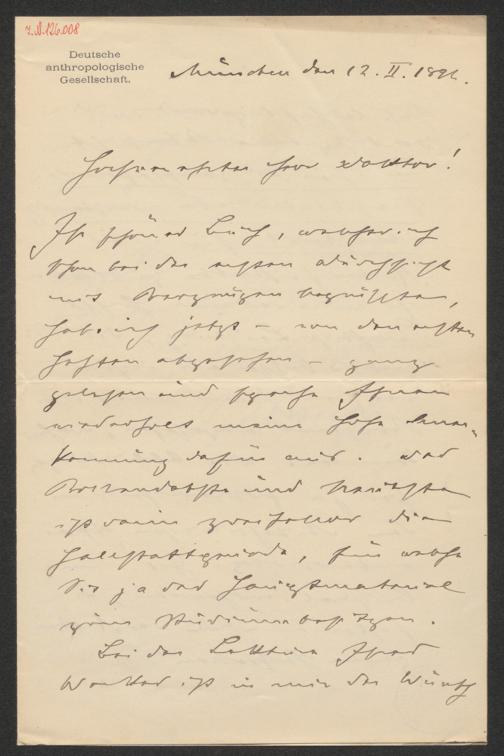 7.N.126.008
Deutsche
anthropologische
Gesellschaft.
München den 12. II. 1892.
Hochverehrter Herr Doktor!
Ihr schönes Buch, welches ich
schon bei der ersten Durchsicht
mit Vergnügen begrüßte,
habe ich jetzt – von den ersten
Heften abgesehen – ganz
gelesen und spreche Ihnen
wiederholt meine hohe Aner-
kennung dafür aus. Das
und
ist darin zweifellos die
Hallstattperiode, für welche
Sie ja das Hauptmaterial
zum Studium besitzen.
Bei der Lektüre Ihres
Werkes ist in mir der Wunsch